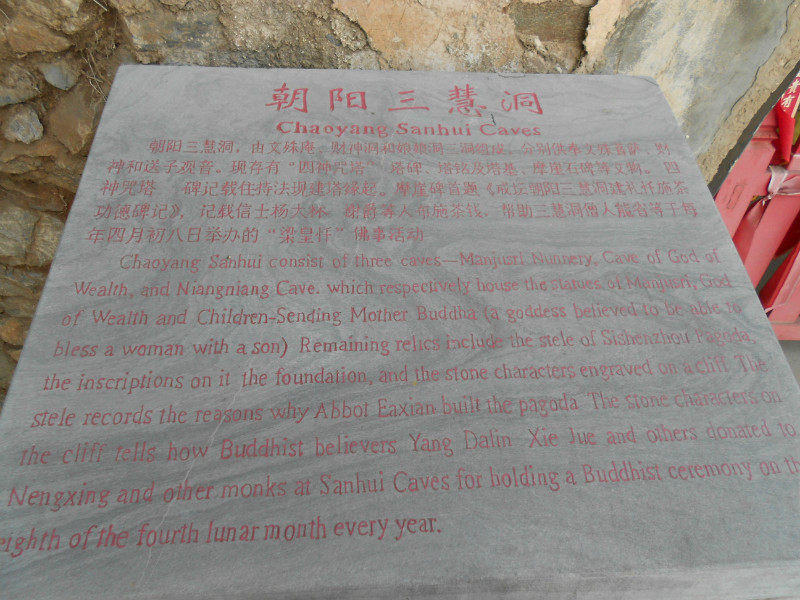 朝阳三慧洞
Chaoyang Sanhui Caves
朝阳三慧洞，由文殊庵、财神洞和娘娘洞三洞组成，分别供奉文殊菩萨、财
神和送子观音。现存有“四神咒塔”塔碑、塔铭及塔基、摩崖石碑等文物。四
神咒塔 碑记载住持法现建塔缘起。摩崖碑首题《成坛朝阳三慧洞建礼忏施茶
功德碑记》，记载信士杨大林 谢爵等人布施茶钱，帮助三慧洞僧人能省等于每
年四月初八日举办的“梁皇忏”佛事活动
Chaoyang Sanhui consist of three caves—Manjusri Nunnery, Cave of God of
Wealth, and Niangniang Cave. which respectively house the statues of Manjusri, God
of Wealth and Children-Sending Mother Buddha (a goddess believed to be able to
bless a woman with a son) Remaining relics include the stele of Sishenzhou Pagoda,
the inscriptions on it the foundation, and the stone characters engraved on a cliff The
stele records the reasons why Abbot Eaxian built the pagoda The stone characters on
the cliff tells how Buddhist believers Yang Dalin Xie Jue and others donated to
Nengxing and other monks at Sanhui Caves for holding a Buddhist ceremony on th
eighth of the fourth lunar month every year.